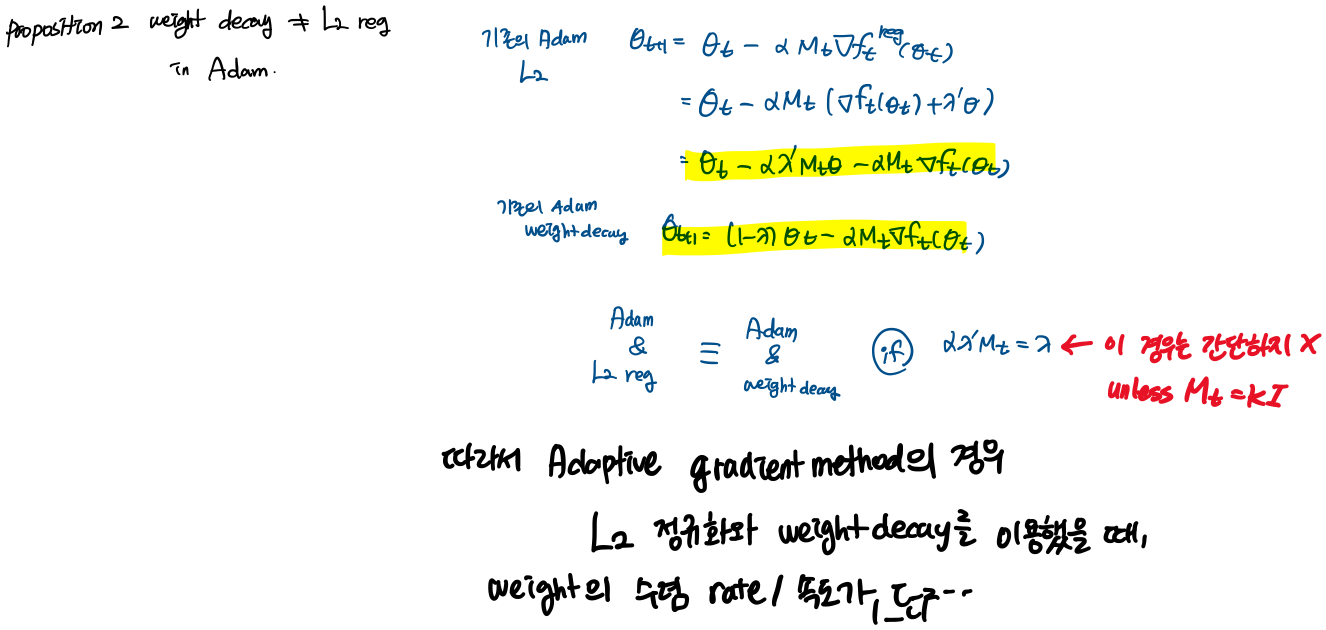 proposition 2 weight decay ≠ L2 reg
in Adam.
기존의 Adam θt+1 = θt - αMt∇ft^reg(θt)
L2
= θt - αMt (∇ft(θt) + λ'θ)
= θt - αλ'Mtθ - αMt∇ft(θt)
기존의 Adam
weight decay θt+1 = (1-λ) θt - αMt∇ft(θt)
Adam & L2 reg ≡ Adam & weight decay if αλ'Mt = λ ← 이 경우는 간단하지 X
unless Mt = kI
따라서 Adaptive gradient method의 경우
L2 정규화와 weight decay를 이용했을 때,
weight의 수렴 rate / 속도가